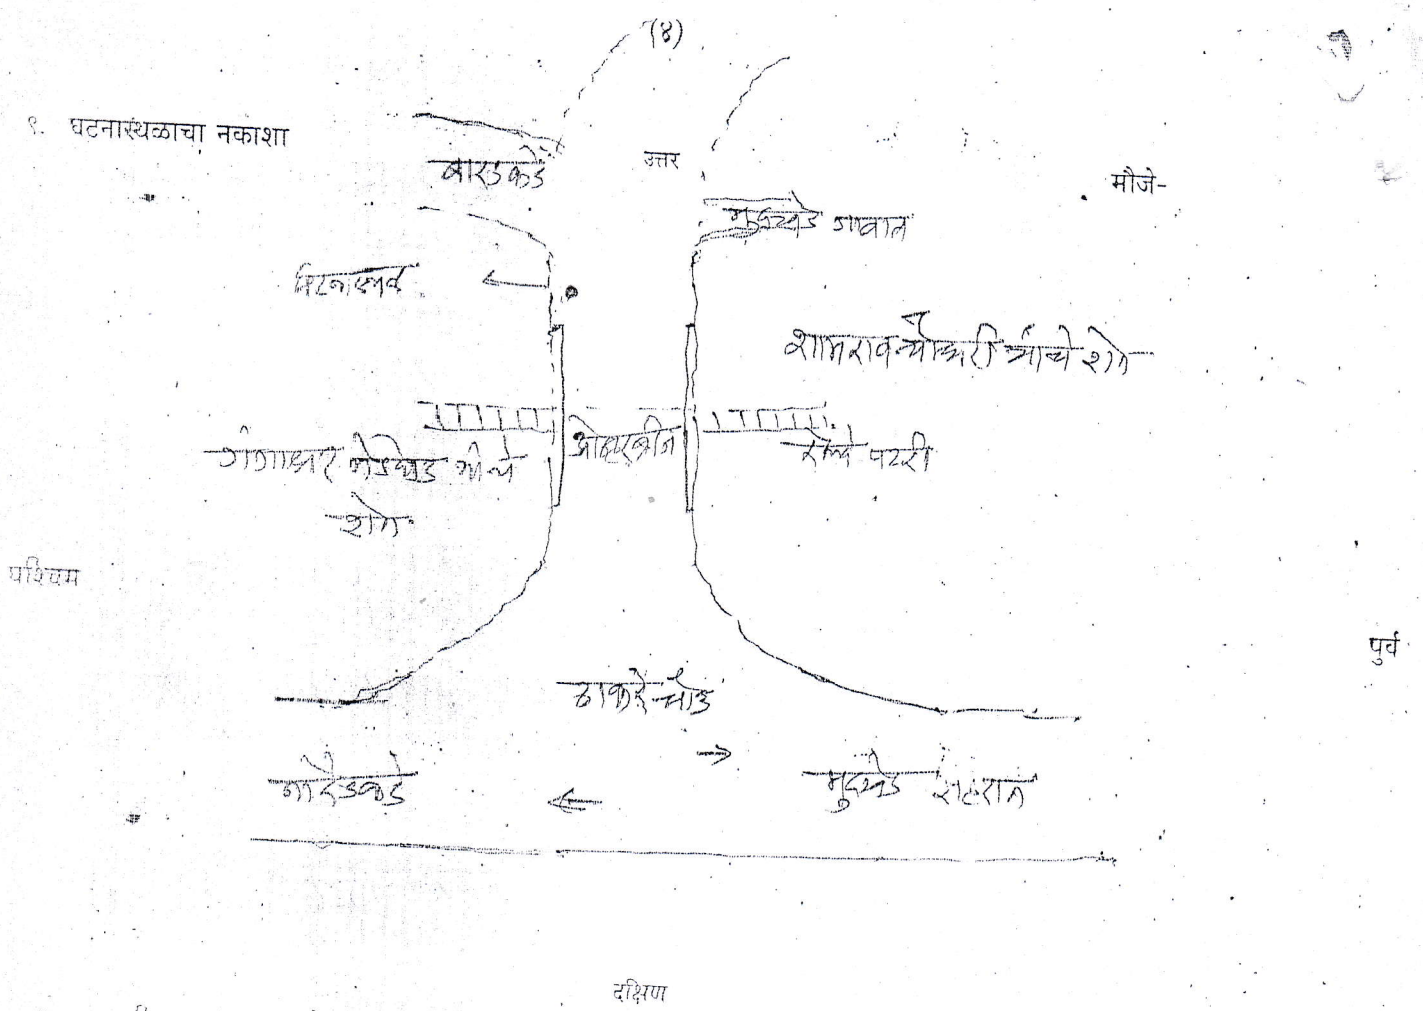 (४)
९. घटनास्थळाचा नकाशा
बारडकडे
उत्तर
मौजे-
मुदखेड गावात
घटनास्थळ
शामराव चौधरी यांचे शेत
ओव्हरब्रीज
रेल्वे पटरी
गंगाधर यांचे
शेत
पश्चिम
पुर्व
ठाकरे चौक
नांदेडकडे
मुदखेड शहरात
दक्षिण